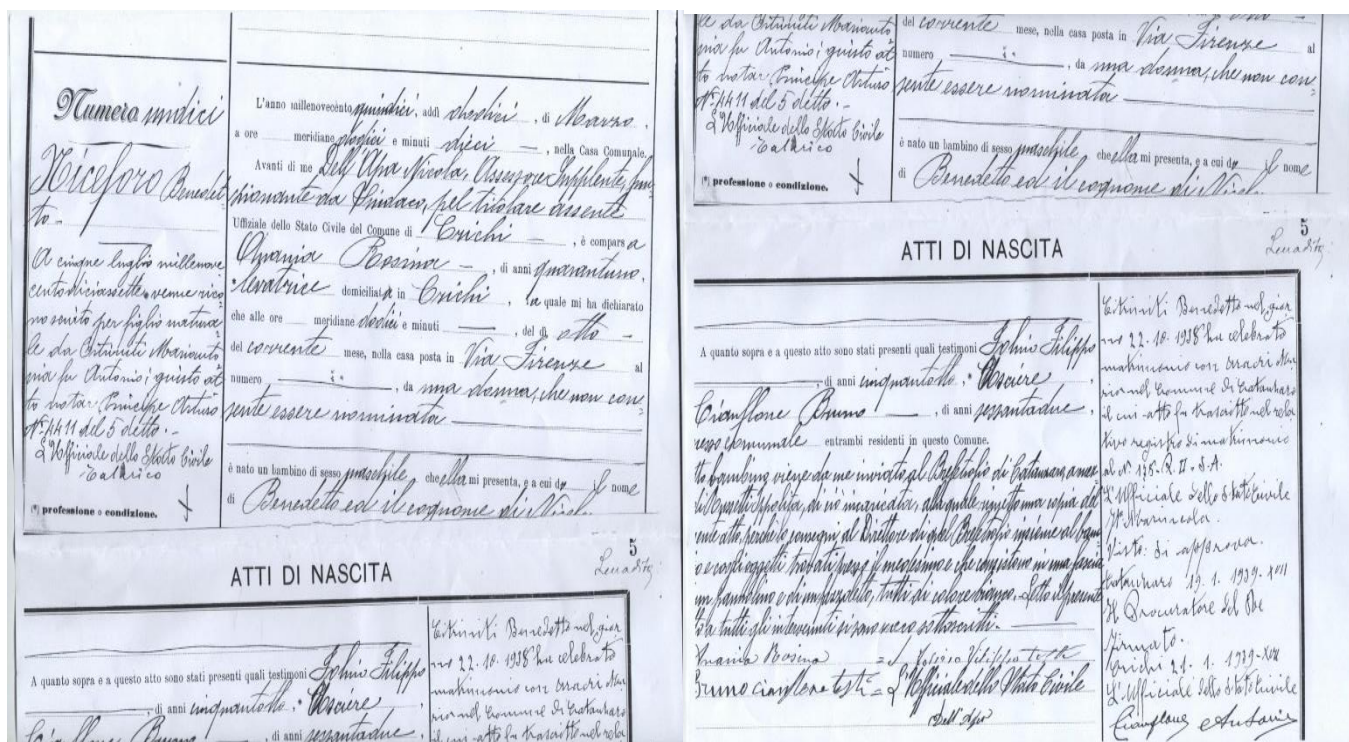 Numero undici
Niceforo Benedet-
to -
A cinque luglio millenove
centodiciassette venne rico
nosciuto per figlio natura
le da Citriniti Mariantò
nia fu Antonio; giusto at
to notar Principe Arturo
N.º 4411 del 5 detto. -
L'Uffiziale dello Stato Civile
Talarico
(*) professione o condizione.
L'anno millenovecento quindici, addì dodici, di Marzo,
a ore meridiane dodici e minuti dieci —, nella Casa Comunale.
Avanti di me Dell'Apa Nicola, Assessore Supplente, fun-
zionante da Sindaco, pel titolare assente
Uffiziale dello Stato Civile del Comune di Crichi —, è comparsa
Opania Rosina —, di anni quarantuno,
levatrice domiciliata in Crichi, la quale mi ha dichiarato
che alle ore meridiane dodici e minuti —, del dì otto —
del corrente mese, nella casa posta in Via Firenze al
numero —, da una donna, che non con-
sente essere nominata —
è nato un bambino di sesso maschile, che ella mi presenta, e a cui dà il nome
di Benedetto ed il cognome di
5
ATTI DI NASCITA
A quanto sopra e a questo atto sono stati presenti quali testimoni Filippo
—, di anni cinquantotto, Usciere
Bruno —, di anni sessantadue,
Citriniti Benedetto nel gior
no 22.10.1938 ha celebrato
matrimonio con
nel Comune di Catanzaro
il cui atto fu trascritto nel rela
le da Citriniti Mariantò
nia fu Antonio; giusto at
to notar Principe Arturo
N.º 4411 del 5 detto. -
L'Uffiziale dello Stato Civile
Talarico
(*) professione o condizione.
del corrente mese, nella casa posta in Via Firenze al
numero —, da una donna, che non con-
sente essere nominata —
è nato un bambino di sesso maschile, che ella mi presenta, e a cui dà il nome
di Benedetto ed il cognome di
5
ATTI DI NASCITA
A quanto sopra e a questo atto sono stati presenti quali testimoni Filippo
—, di anni cinquantotto, Usciere,
Cianflone Bruno —, di anni sessantadue,
messo comunale entrambi residenti in questo Comune.
bambino viene da me inviato al Brefotrofio di Catanzaro, a mez
Ippolita, di ciò incaricata, alla quale rimetto una copia del
ente atto, perché la consegni al Direttore di quel Brefotrofio insieme al bam
o e cogli oggetti trovati presso il medesimo e che consistono in una fascia
un pannolino e di un, tutti di colore bianco. Letto il presente
a tutti gli intervenuti si sono meco sottoscritti. —
Rosina = Filippo teste
Bruno Cianflone teste = L'Uffiziale dello Stato Civile
Dell'Apa
Citriniti Benedetto nel gior
no 22.10.1938 ha celebrato
matrimonio con
nel Comune di Catanzaro
il cui atto fu trascritto nel rela
tivo registro di matrimonio
al N.º 175 - P. II - S. A.
L'Ufficiale dello Stato Civile
Visto: si approva.
Catanzaro 19.1.1939-XVII
Il Procuratore del Re
Firmato.
Crichi 21.1.1939-XVII
L'Ufficiale dello Stato Civile
Cianflone Antonio